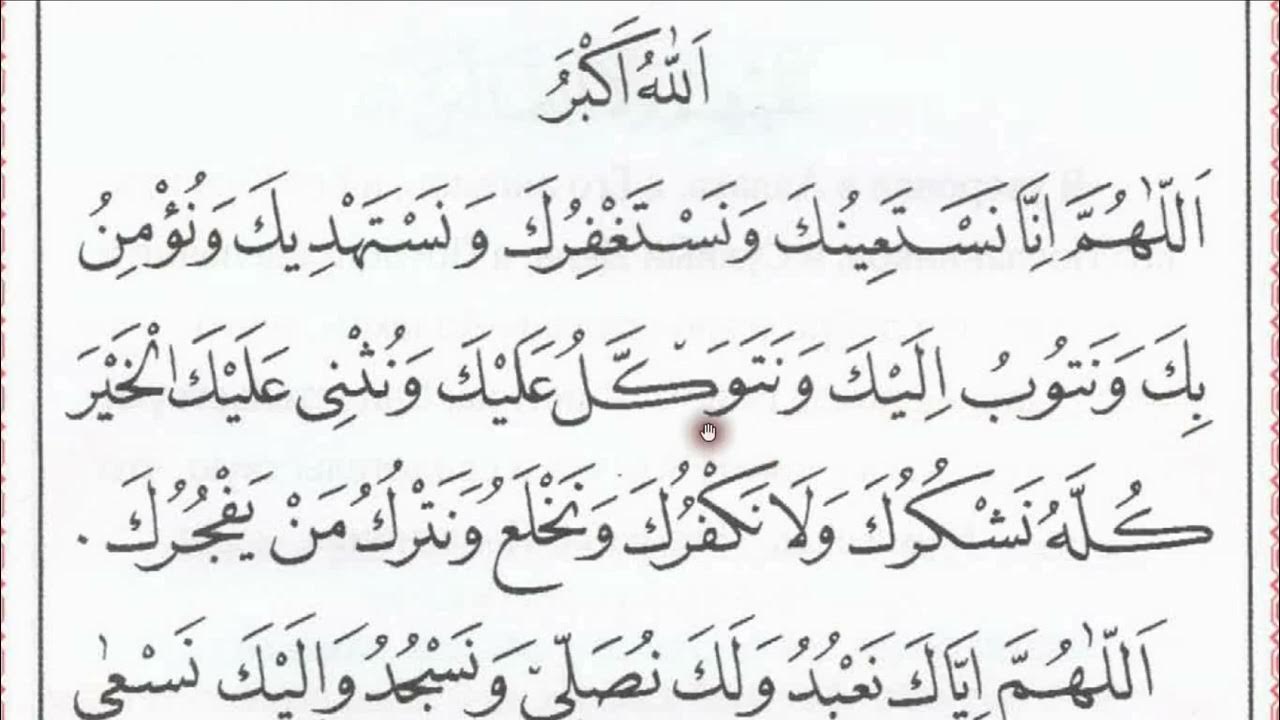 اَللّٰهُ اَكْبَرُ
اَللّٰهُمَّ اِنَّا نَسْتَعِينُكَ وَنَسْتَغْفِرُكَ وَنَسْتَهْدِيكَ وَنُؤْمِنُ
بِكَ وَنَتُوبُ اِلَيْكَ وَنَتَوَكَّلُ عَلَيْكَ وَنُثْنِى عَلَيْكَ الْخَيْرَ
كُلَّهُ نَشْكُرُكَ وَلَا نَكْفُرُكَ وَنَخْلَعُ وَنَتْرُكُ مَنْ يَفْجُرُكَ .
اَللّٰهُمَّ اِيَّاكَ نَعْبُدُ وَلَكَ نُصَلِّى وَنَسْجُدُ وَاِلَيْكَ نَسْعٰى